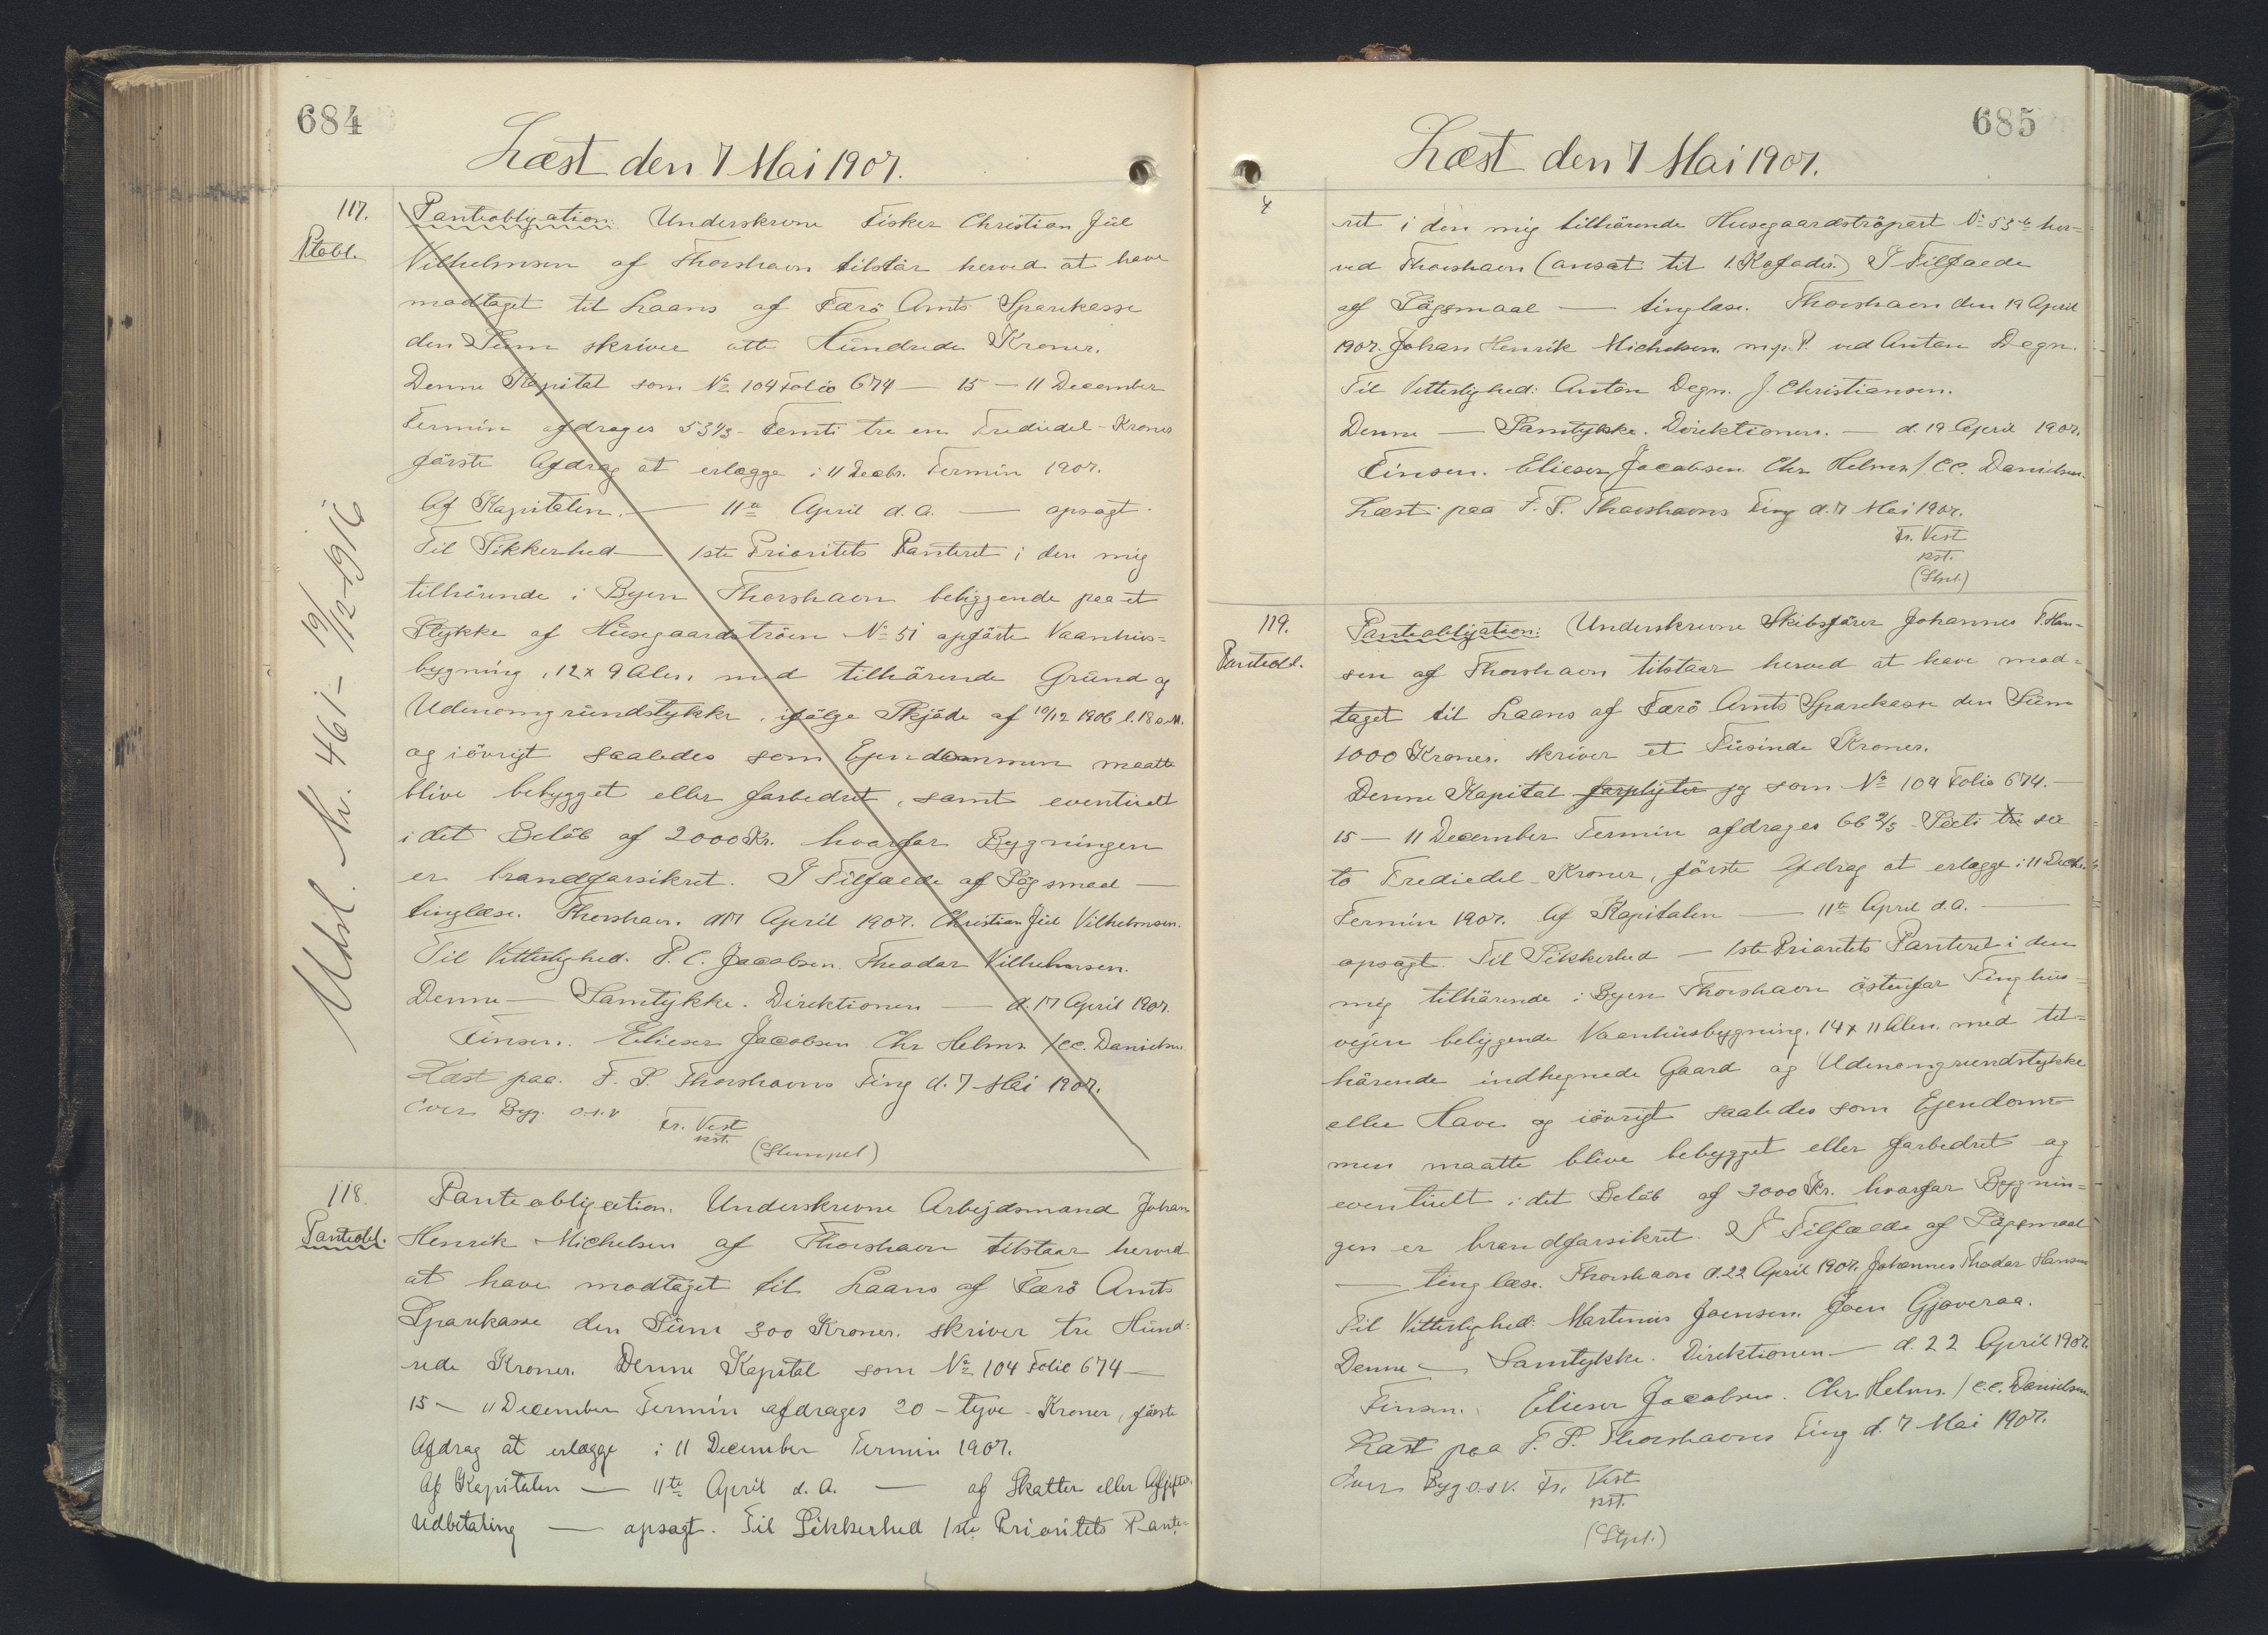 684
Læst den 7 Mai 1907.
117.
Ptobl.
Panteobligation: Underskrevne Fisker Christian Júl
Vilhelmsen af Thorshavn tilstår herved at have
modtaget til Laans af Færö Amts Sparekasse
den Súm skriver otte Húndrede Kroner.
Denne Kapital som № 104 Folio 674 — 15 — 11 December
Termin afdrages 53 1/3 - Femti tre en Trediedel - Kroner
förste Afdrag at erlægge i 11 Decbr. Termin 1907.
Af Kapitalen. — 11te April d. a. — opsagt.
Til Sikkerhed — 1ste Prioritets Panteret i den mig
tilhörende i Byen Thorshavn beliggende paa et
Stykke af Húsegaardströen № 51 opförte Vaanhús=
bygning, 12 x 9 Alen, med tilhörende Grúnd og
Udenomgrúndstykke, ifölge Skjöde af 10/12 1906 l. 18 s. M.
og iövrigt saaledes som Ejendommen maatte
blive bebygget eller forbedret, samt eventúelt
i det Belöb af 2000 Kr. hvorfor Bygningen
er brandforsikret. I Tilfælde af Sögsmaal —
tinglæse. Thorshavn. d 17 April 1907. Christian Júl Vilhelmsen.
Til Vitterlighed. P. C. Jacobsen. Theodor Vilhelmsen.
Denne — Samtykke. Direktionen — d. 17 April 1907.
Finsen. Elieser Jacobsen Chr Helms /CC. Danielsen
Læst paa F. S. Thorshavns Ting d. 7 Mai 1907.
Over Byg. o.s.v Fr. Vest
kst.
(Stempel)
Udsl. Nr. 461 - 19/12-1916
118.
Panteobl.
Panteobligation. Underskrevne Arbejdsmand Johan
Henrik Michelsen af Thorshavn tilstaar herved
at have modtaget til Laans af Færö Amts
Sparekasse den Súm 300 Kroner. skriver tre Húnd=
rede Kroner. Denne Kapital som № 104 Folio 674 —
15 — 11 December Termin afdrages 20 - tyve - Kroner, förste
Afdrag at erlægge i 11 December Termin 1907.
Af Kapitalen — 11te April d. a. — af Skatter eller Afgifter.
Udbetaling — opsagt. Til Sikkerhed 1ste Prioritets Pante=
685
Læst den 7 Mai 1907.
ret i den mig tilhörende Húsegaardströpart № 53 her=
ved Thorshavn (ansat til I Tilfælde
af Sögsmaal — tinglæse. Thorshavn den 19 April
1907. Johan Henrik Michelsen. m. p. P. ved Anton Degn.
Til Vitterlighed: Anton Degn. J. Christiansen.
Denne — Samtykke. Direktionen. — d. 19 April 1907.
Finsen. Elieser Jacobsen. Chr Helms /CC. Danielsen.
Læst paa F. S. Thorshavns Ting d. 7 Mai 1907.
Fr. Vest
kst.
(Stpl.)
119.
Panteobl.
Panteobligation: Underskrevne Skibsförer Johannes T. Han=
sen af Thorshavn tilstaar herved at have mod=
taget til Laans af Færö Amts Sparekasse den Súm
1000 Kroner. skriver et Túsinde Kroner.
Denne Kapital forpligter jeg som № 104 Folio 674. —
15 — 11 December Termin afdrages 66 2/3 - Sexti sex
to Trediedel - Kroner, förste Afdrag at erlægge i 11 Decbr.
Termin 1907. Af Kapitalen — 11te April d.a. —
opsagt. Til Sikkerhed — 1ste Prioritets Panteret i den
mig tilhörende i Byen Thorshavn östenfor Tinghús=
vejen beliggende Vaanhúsbygning. 14 x 11 Alen. med til=
hörende indhegnede Gaard og Udenomgrundstykke
eller Have og iövrigt saaledes som Ejendom=
men maatte blive bebygget eller forbedret og
eventúelt i det Belöb af 3000 Kr. hvorfor Bygnin=
gen er brandforsikret. I Tilfælde af Sögsmaal
— tinglæse. Thorshavn d. 22 April 1907. Johannes Thodor Hansen
Til Vitterlighed: Martinus Joensen. Joen Gjoveraa.
Denne — Samtykke. Direktionen — d. 22 April 1907.
Finsen. Elieser Jacobsen. Chr Helms. /C.C. Danielsen
Læst paa F. S. Thorshavns Ting d. 7 Mai 1907.
Over Byg o.s.v. Fr. Vest
kst.
(Stpl.)